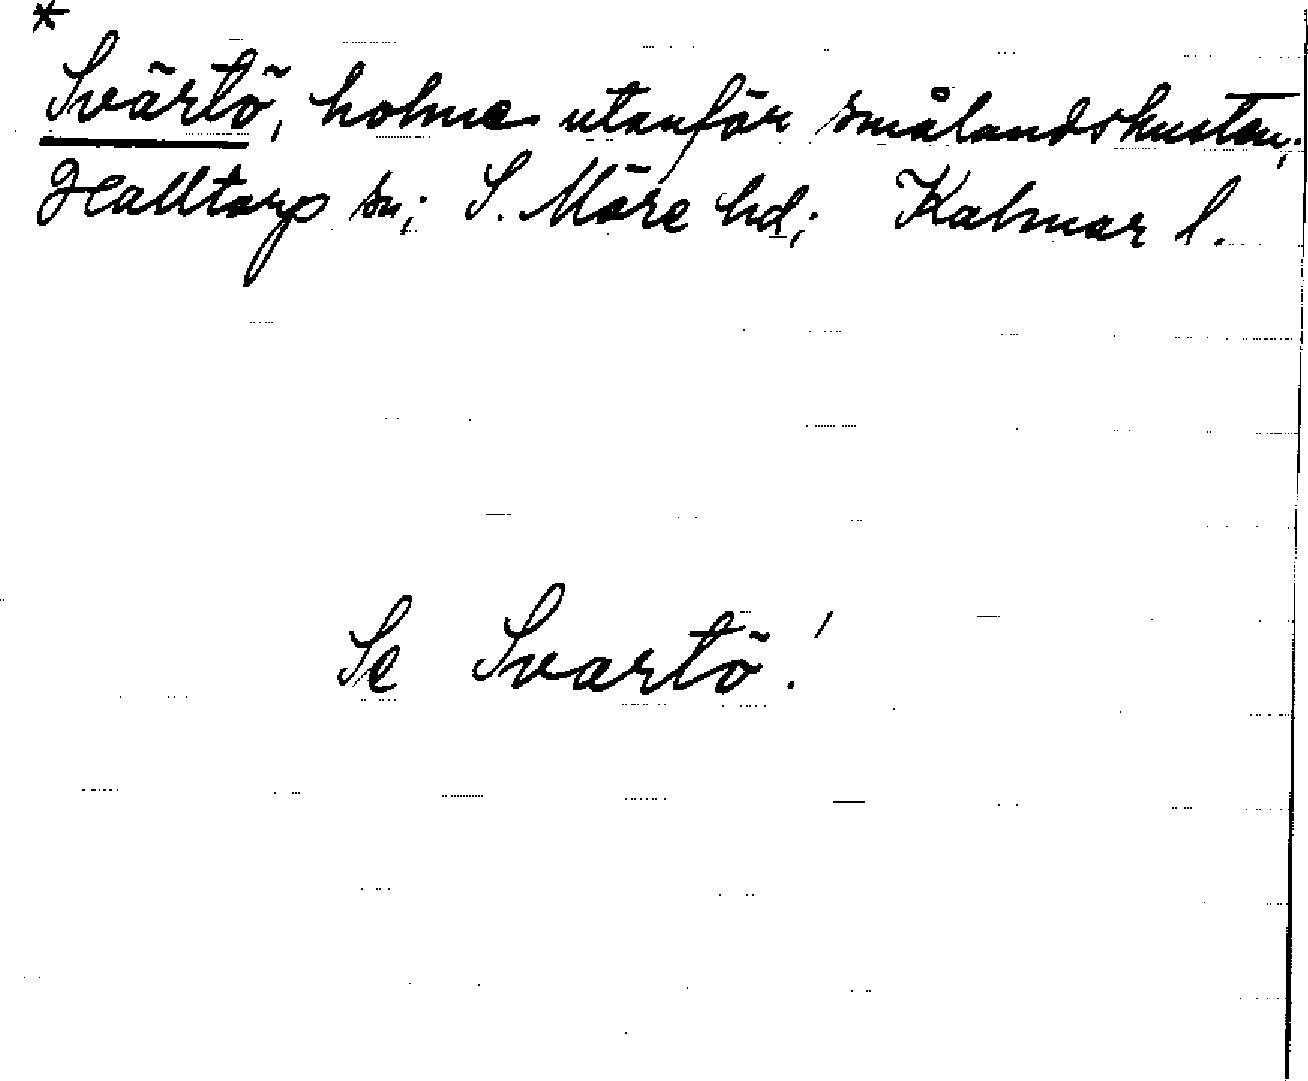 *
Svärtö, holme utanför smålandskusten;
Halltorp sn; S. Möre hd; Kalmar l.
Se Svartö!